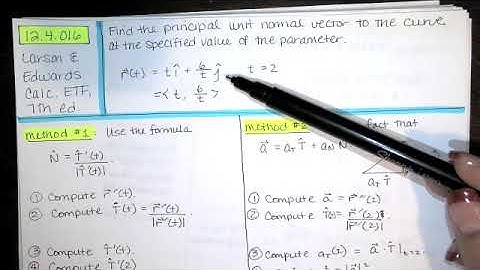 12.4.016
Larson &
Edwards
Calc. ETF,
7th ed.
Find the principal unit normal vector to the curve
at the specified value of the parameter.
r⃗(t) = t î + 6/t ĵ , t = 2
= < t, 6/t >
method #1: Use the formula
N̂ = T̂'(t) / |T̂'(t)|
① Compute r⃗'(t).
② Compute T̂(t) = r⃗'(t) / |r⃗'(t)|
③ Compute T̂'(t)
④ Compute T̂'(2)
method #2 fact that
a⃗ = a_T T̂ + a_N N
a_T T̂
① Compute a⃗ = r⃗''(2)
② Compute T̂(2) = r⃗'(2) / |r⃗'(2)|
③ Compute a_T(2) = a⃗ · T̂ |t=2